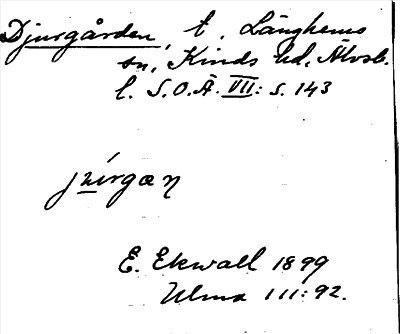 Djurgården, t. Länghems
sn, Kinds hd. Älvsb.
l. S.O.Ä. VII: s. 143
E. Ekwall 1899
Ulma 111:92.